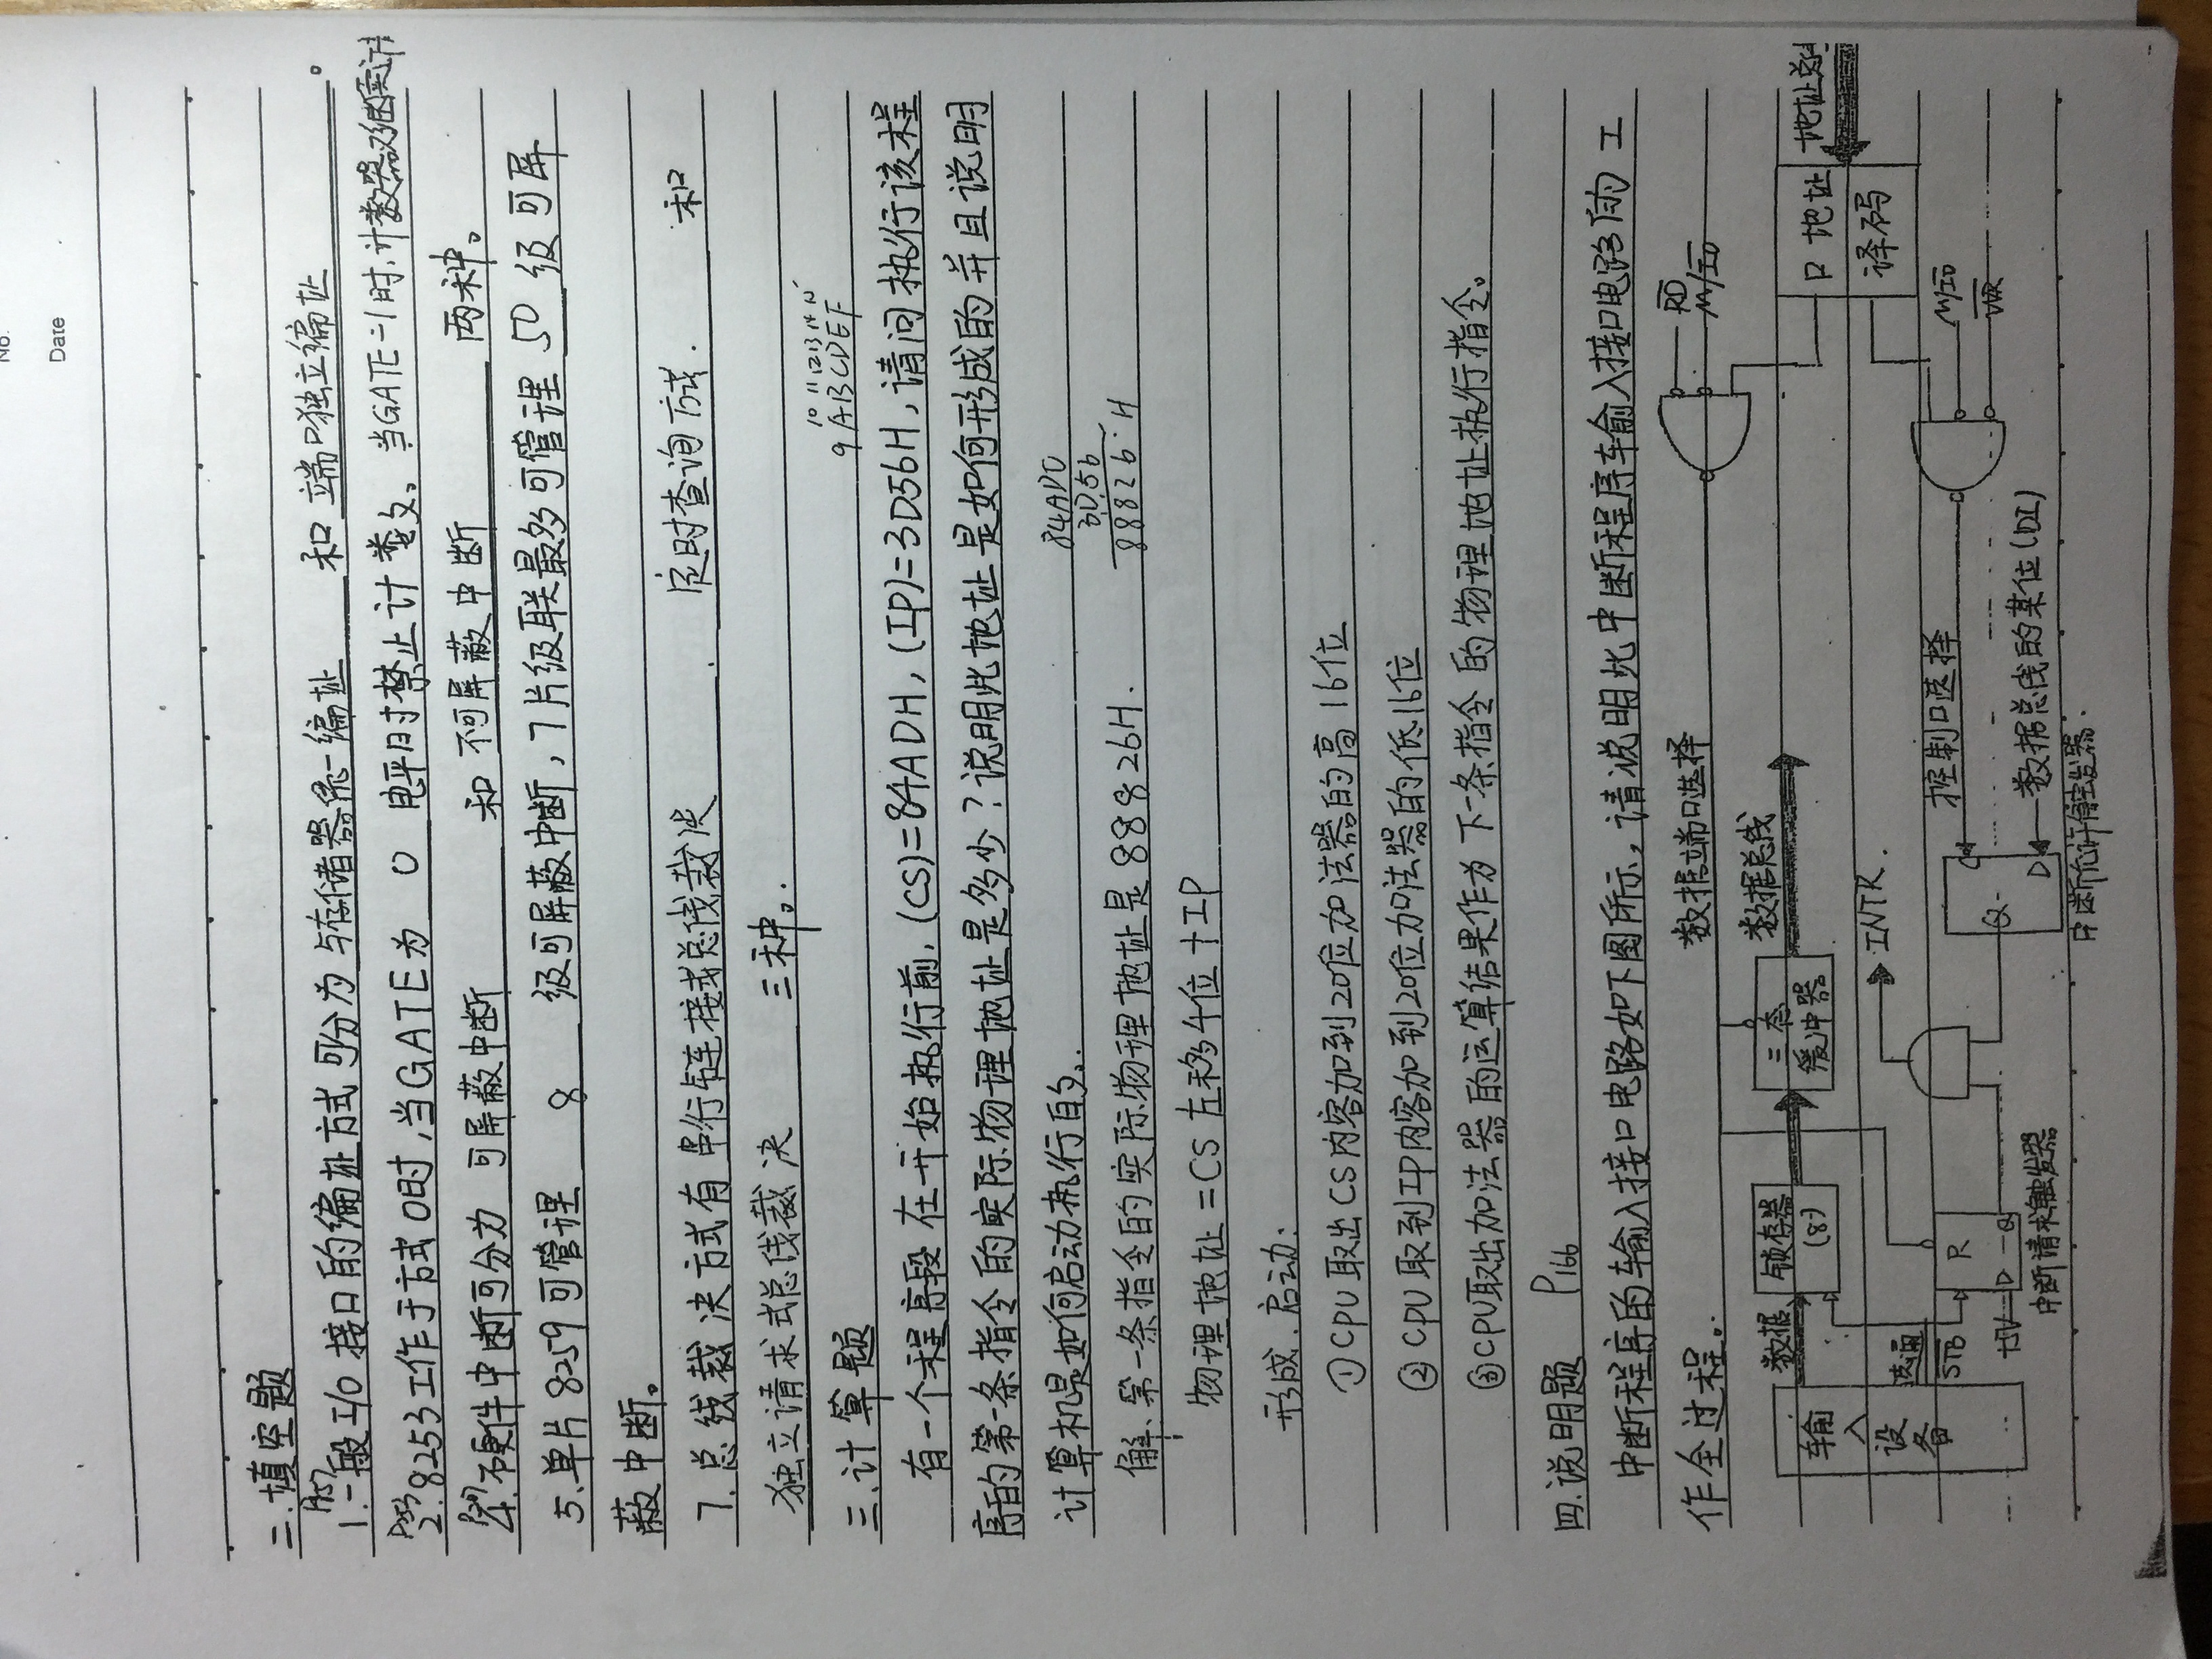 No.
Date
二.填空题
P157
1.一般I/O接口的编址方式可分为 与存储器统一编址 和 端口独立编址 。
2.8253工作于方式0时,当GATE为 0 电平时禁止计数。当GATE=1时,计数器又继续计
4.硬件中断可分为 可屏蔽中断 和 不可屏蔽中断 两种。
5.单片8259可管理 8 级可屏蔽中断,7片级联最多可管理 50 级可屏
蔽中断。
7.总线裁决方式有 串行链接式总线裁决 、 定时查询方式. 和
独立请求式总线裁决 三种。
10 11 12 13 14 15
9 A B C D E F
三.计算题
有一个程序段在开始执行前,(CS)=84ADH,(IP)=3D56H,请问执行该程
序的第一条指令的实际物理地址是多少?说明此地址是如何形成的并且说明
计算机是如何启动执行的。
84AD0
3D56
88826 H
解:第一条指令的实际物理地址是88826H.
物理地址=CS左移4位+IP
形成.启动:
①CPU取出CS内容加到20位加法器的高16位
②CPU取到IP内容加到20位加法器的低16位
③CPU取出加法器的运算结果作为下一条指令的物理地址执行指令。
四.说明题 P166
中断程序的输入接口电路如下图所示,请说明此中断程序输入接口电路的工
作全过程。
数据端口选择
RD
M/IO
数据
锁存器
(8)
三态
缓冲器
数据总线
输
入
设
备
口地址
译码
INTR.
选通
STB
R
+5V
D Q
中断请求触发器
Q
C
D
控制口选择
M/IO
WR
数据总线的某位(DI)
中断允许触发器.